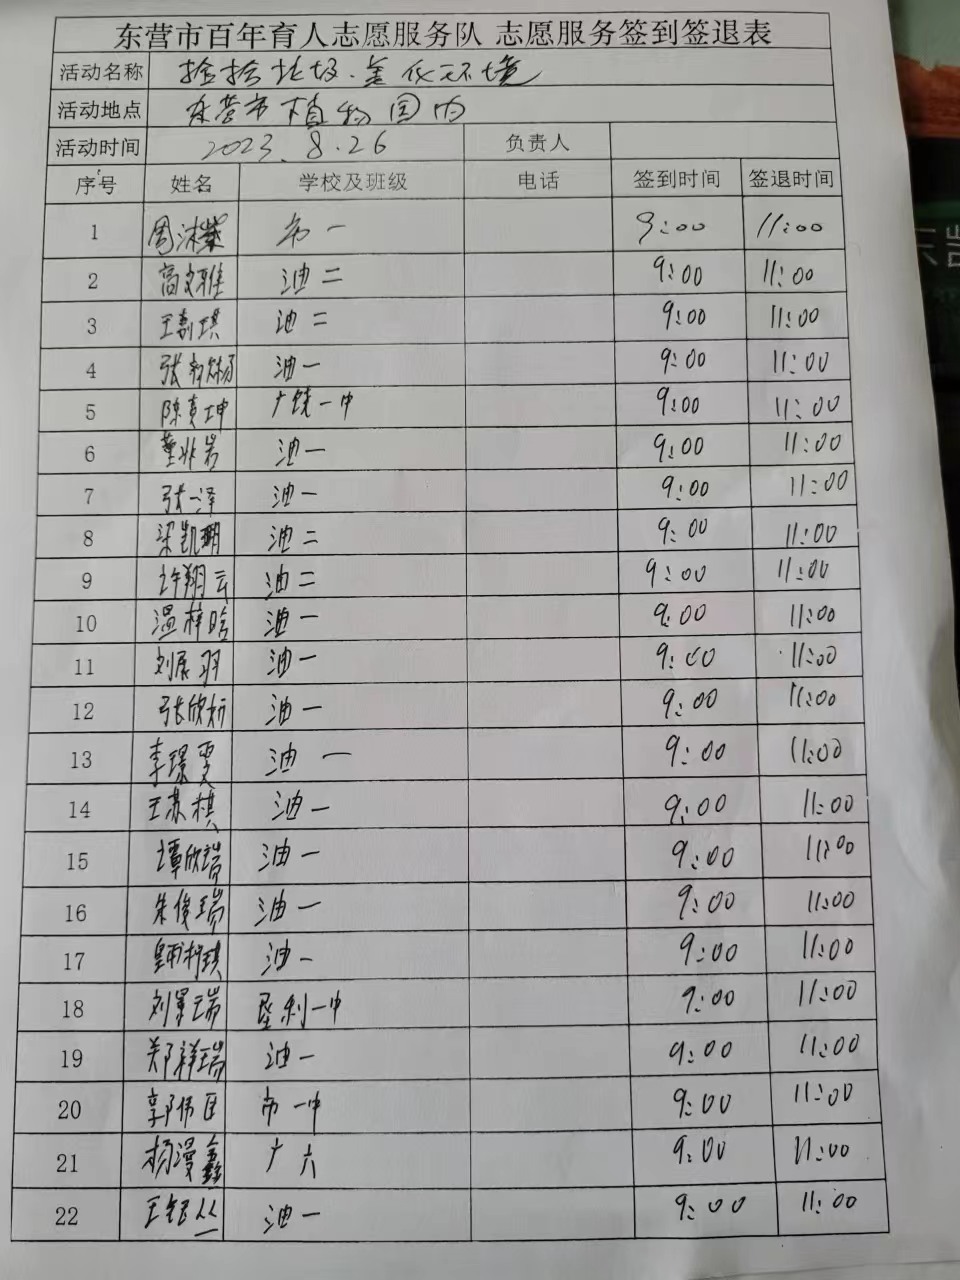 东营市百年育人志愿服务队 志愿服务签到签退表
活动名称 捡拾垃圾.美化环境
活动地点 东营市植物园内
活动时间 2023.8.26 负责人
序号 姓名 学校及班级 电话 签到时间 签退时间
1 周沐 市一 9:00 11:00
2 高文雅 油二 9:00 11:00
3 王嘉琪 油二 9:00 11:00
4 张 油一 9:00 11:00
5 陈 坤 广饶一中 9:00 11:00
6 董兆岩 油一 9:00 11:00
7 张一泽 油一 9:00 11:00
8 梁凯珊 油二 9:00 11:00
9 许翔云 油二 9:00 11:00
10 温梓晗 油一 9:00 11:00
11 刘展羽 油一 9:00 11:00
12 张欣妍 油一 9:00 11:00
13 李璟雯 油一 9:00 11:00
14 王苏棋 油一 9:00 11:00
15 谭欣瑞 油一 9:00 11:00
16 朱俊瑞 油一 9:00 11:00
17 油一 9:00 11:00
18 刘景瑞 垦利一中 9:00 11:00
19 郑祥瑞 油一 9:00 11:00
20 郭伟 市一中 9:00 11:00
21 杨漫鑫 广六 9:00 11:00
22 王钰丛 油一 9:00 11:00